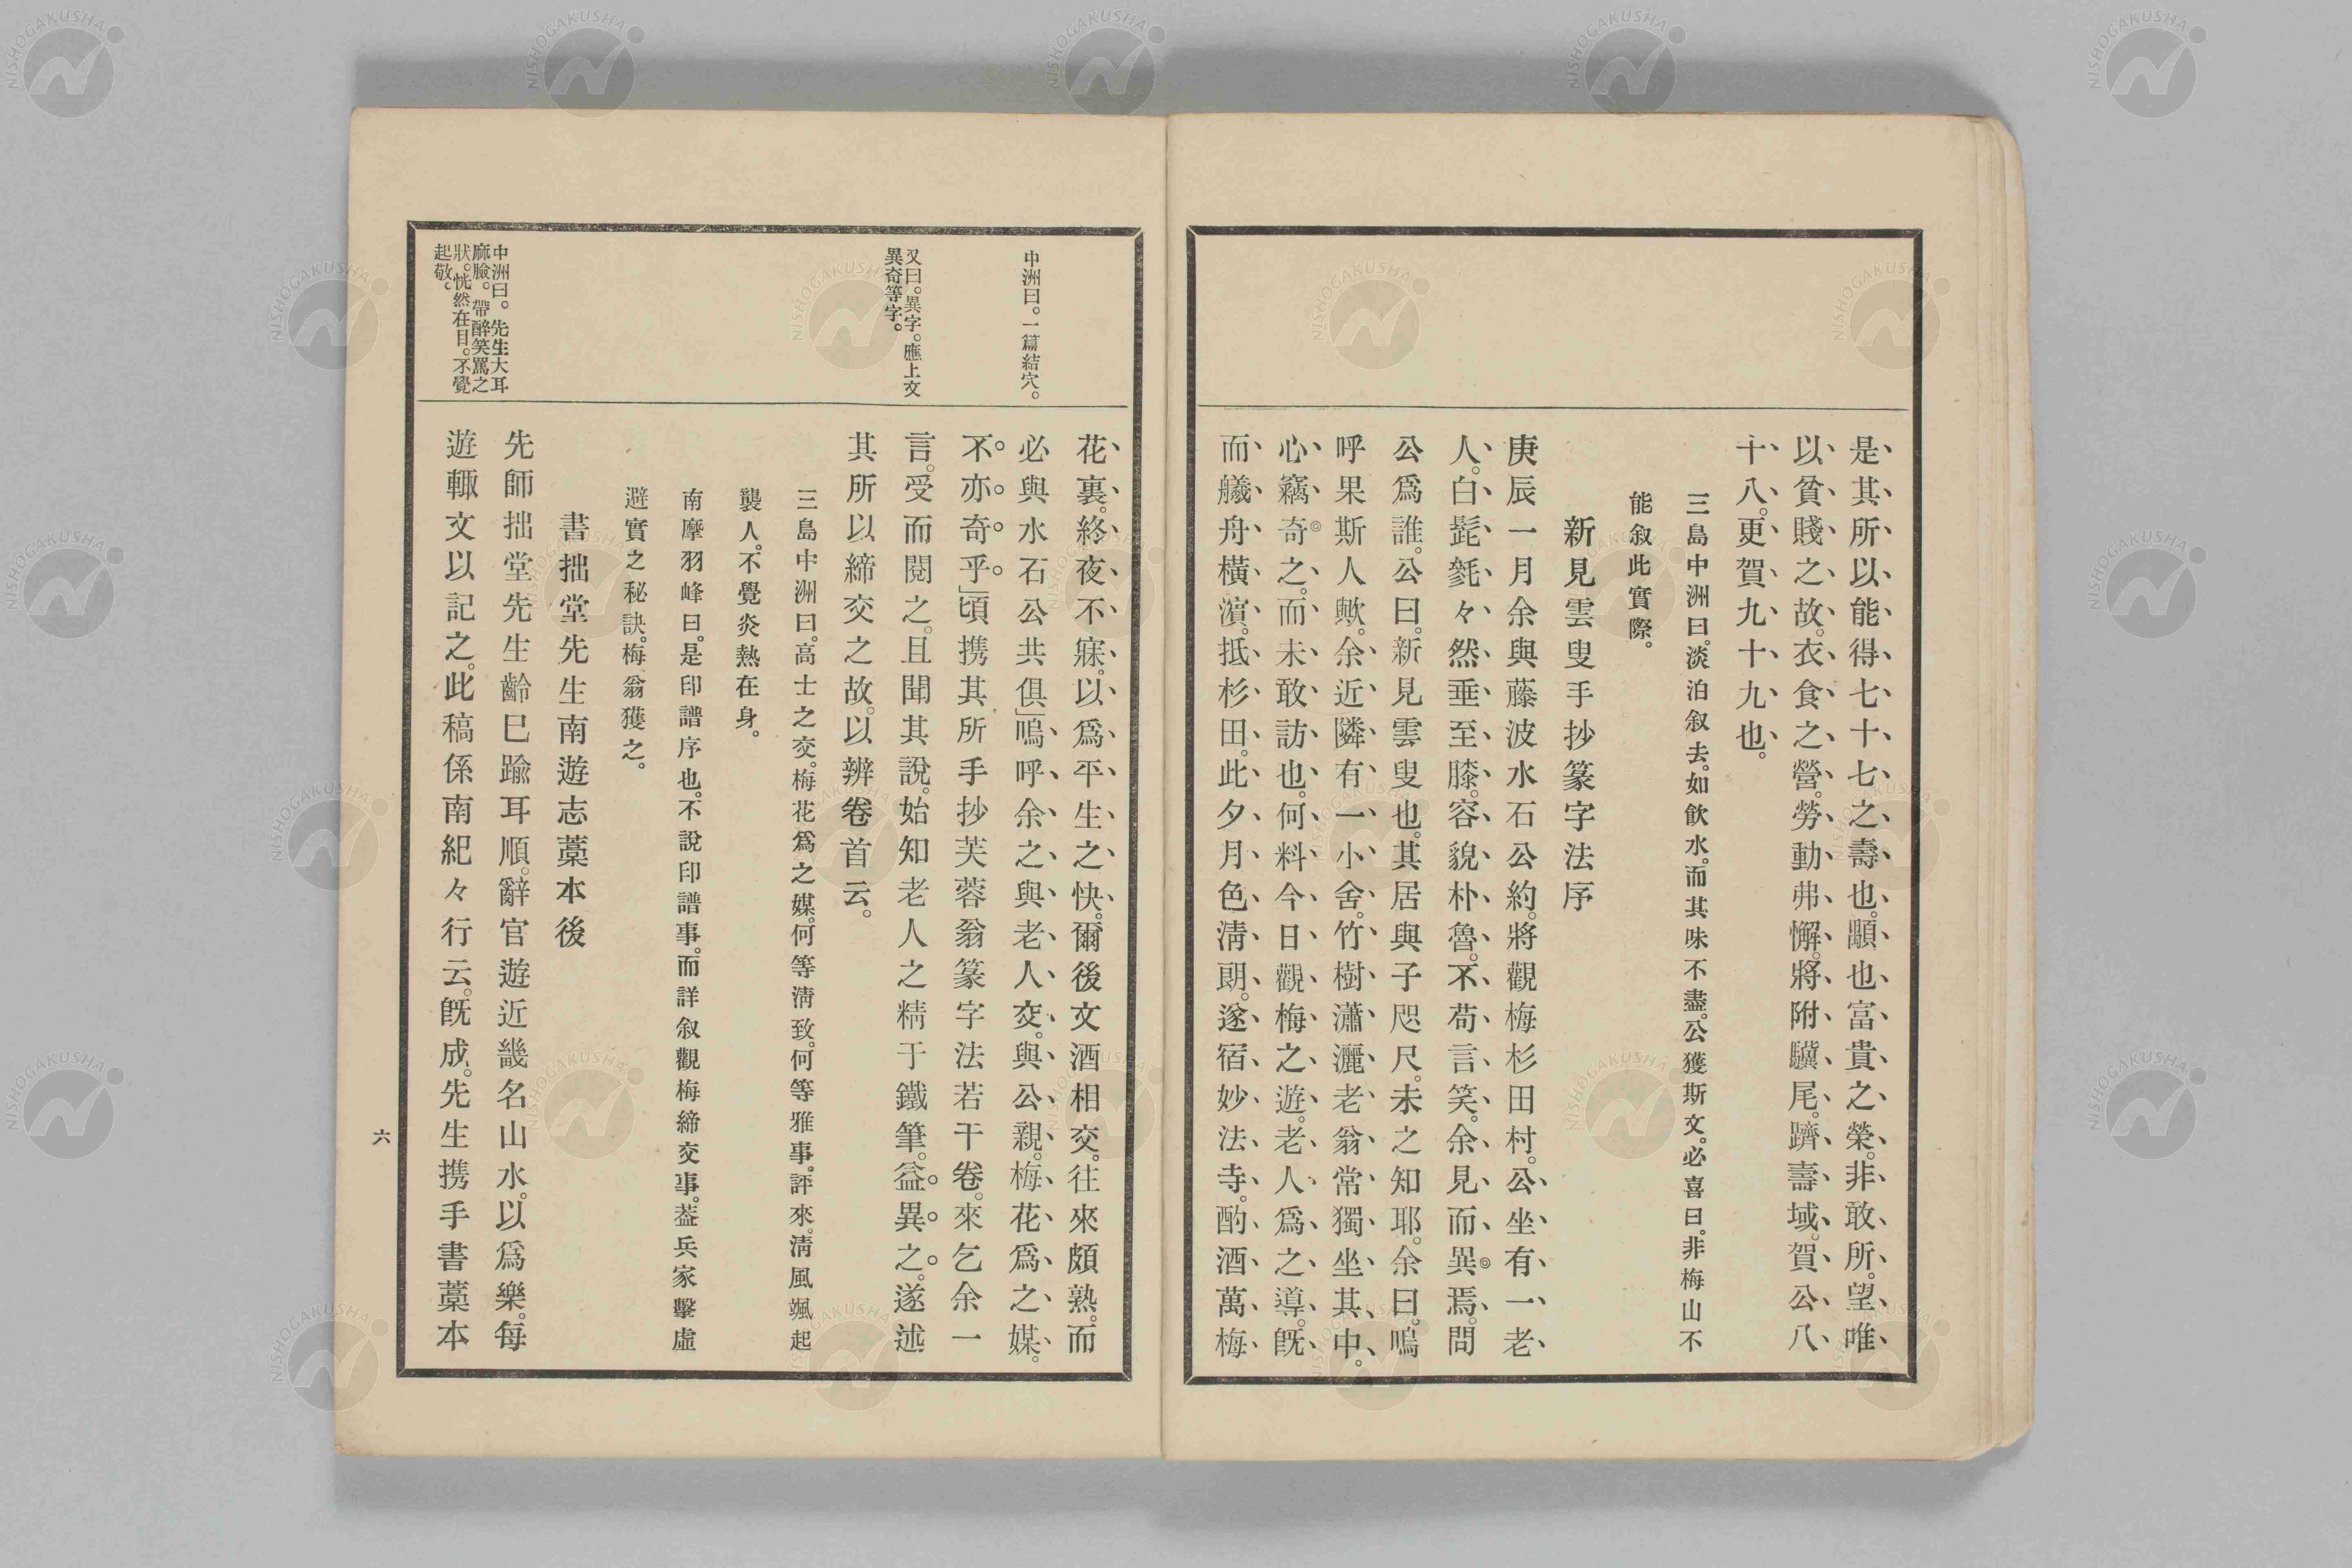 是其所以能得七十七之壽也。顯也富貴之榮。非敢所望。唯
以貧賤之故。衣食之營。勞動弗懈。將附驥尾。躋壽域。賀公八
十八。更賀九十九也。
三島中洲曰。淡泊叙去。如飮水。而其味不盡。公獲斯文。必喜曰。非梅山不
能叙此實際。
新見雲叟手抄篆字法序
庚辰一月余與藤波水石公約。將觀梅杉田村。公坐有一老
人。白髭毿々然垂至膝。容貌朴魯。不苟言笑。余見而異焉。問
公爲誰。公曰。新見雲叟也。其居與子咫尺。未之知耶。余曰。嗚
呼果斯人歟。余近隣有一小舍。竹樹瀟灑老翁常獨坐其中。
心竊奇之。而未敢訪也。何料今日觀梅之遊。老人爲之導。旣
而艤舟橫濵。抵杉田。此夕月色淸朗。遂宿妙法寺。酌酒萬梅
中洲曰。一篇結穴。
又曰。異字。應上文
異奇等字。
中洲曰。先生大耳
麻臉。帶醉笑罵之
狀。恍然在目。不覺
起敬。
花裏。終夜不寐。以爲平生之快。爾後文酒相交。往來頗熟。而
必與水石公共俱」嗚呼余之與老人交。與公親。梅花爲之媒。
不亦奇乎」頃携其所手抄芙蓉翁篆字法若干卷。來乞余一
言。受而閱之。且聞其說。始知老人之精于鐵筆。益異之。遂述
其所以締交之故。以辨卷首云。
三島中洲曰。高士之交。梅花爲之媒。何等淸致。何等雅事。評來。淸風颯起
襲人。不覺炎熱在身。
南摩羽峰曰。是印譜序也。不說印譜事。而詳叙觀梅締交事。葢兵家擊虛
避實之秘訣。梅翁獲之。
書拙堂先生南遊志藁本後
先師拙堂先生齡巳踰耳順。辭官遊近畿名山水。以爲樂。每
遊輙文以記之。此稿係南紀々行云。旣成。先生携手書藁本
六